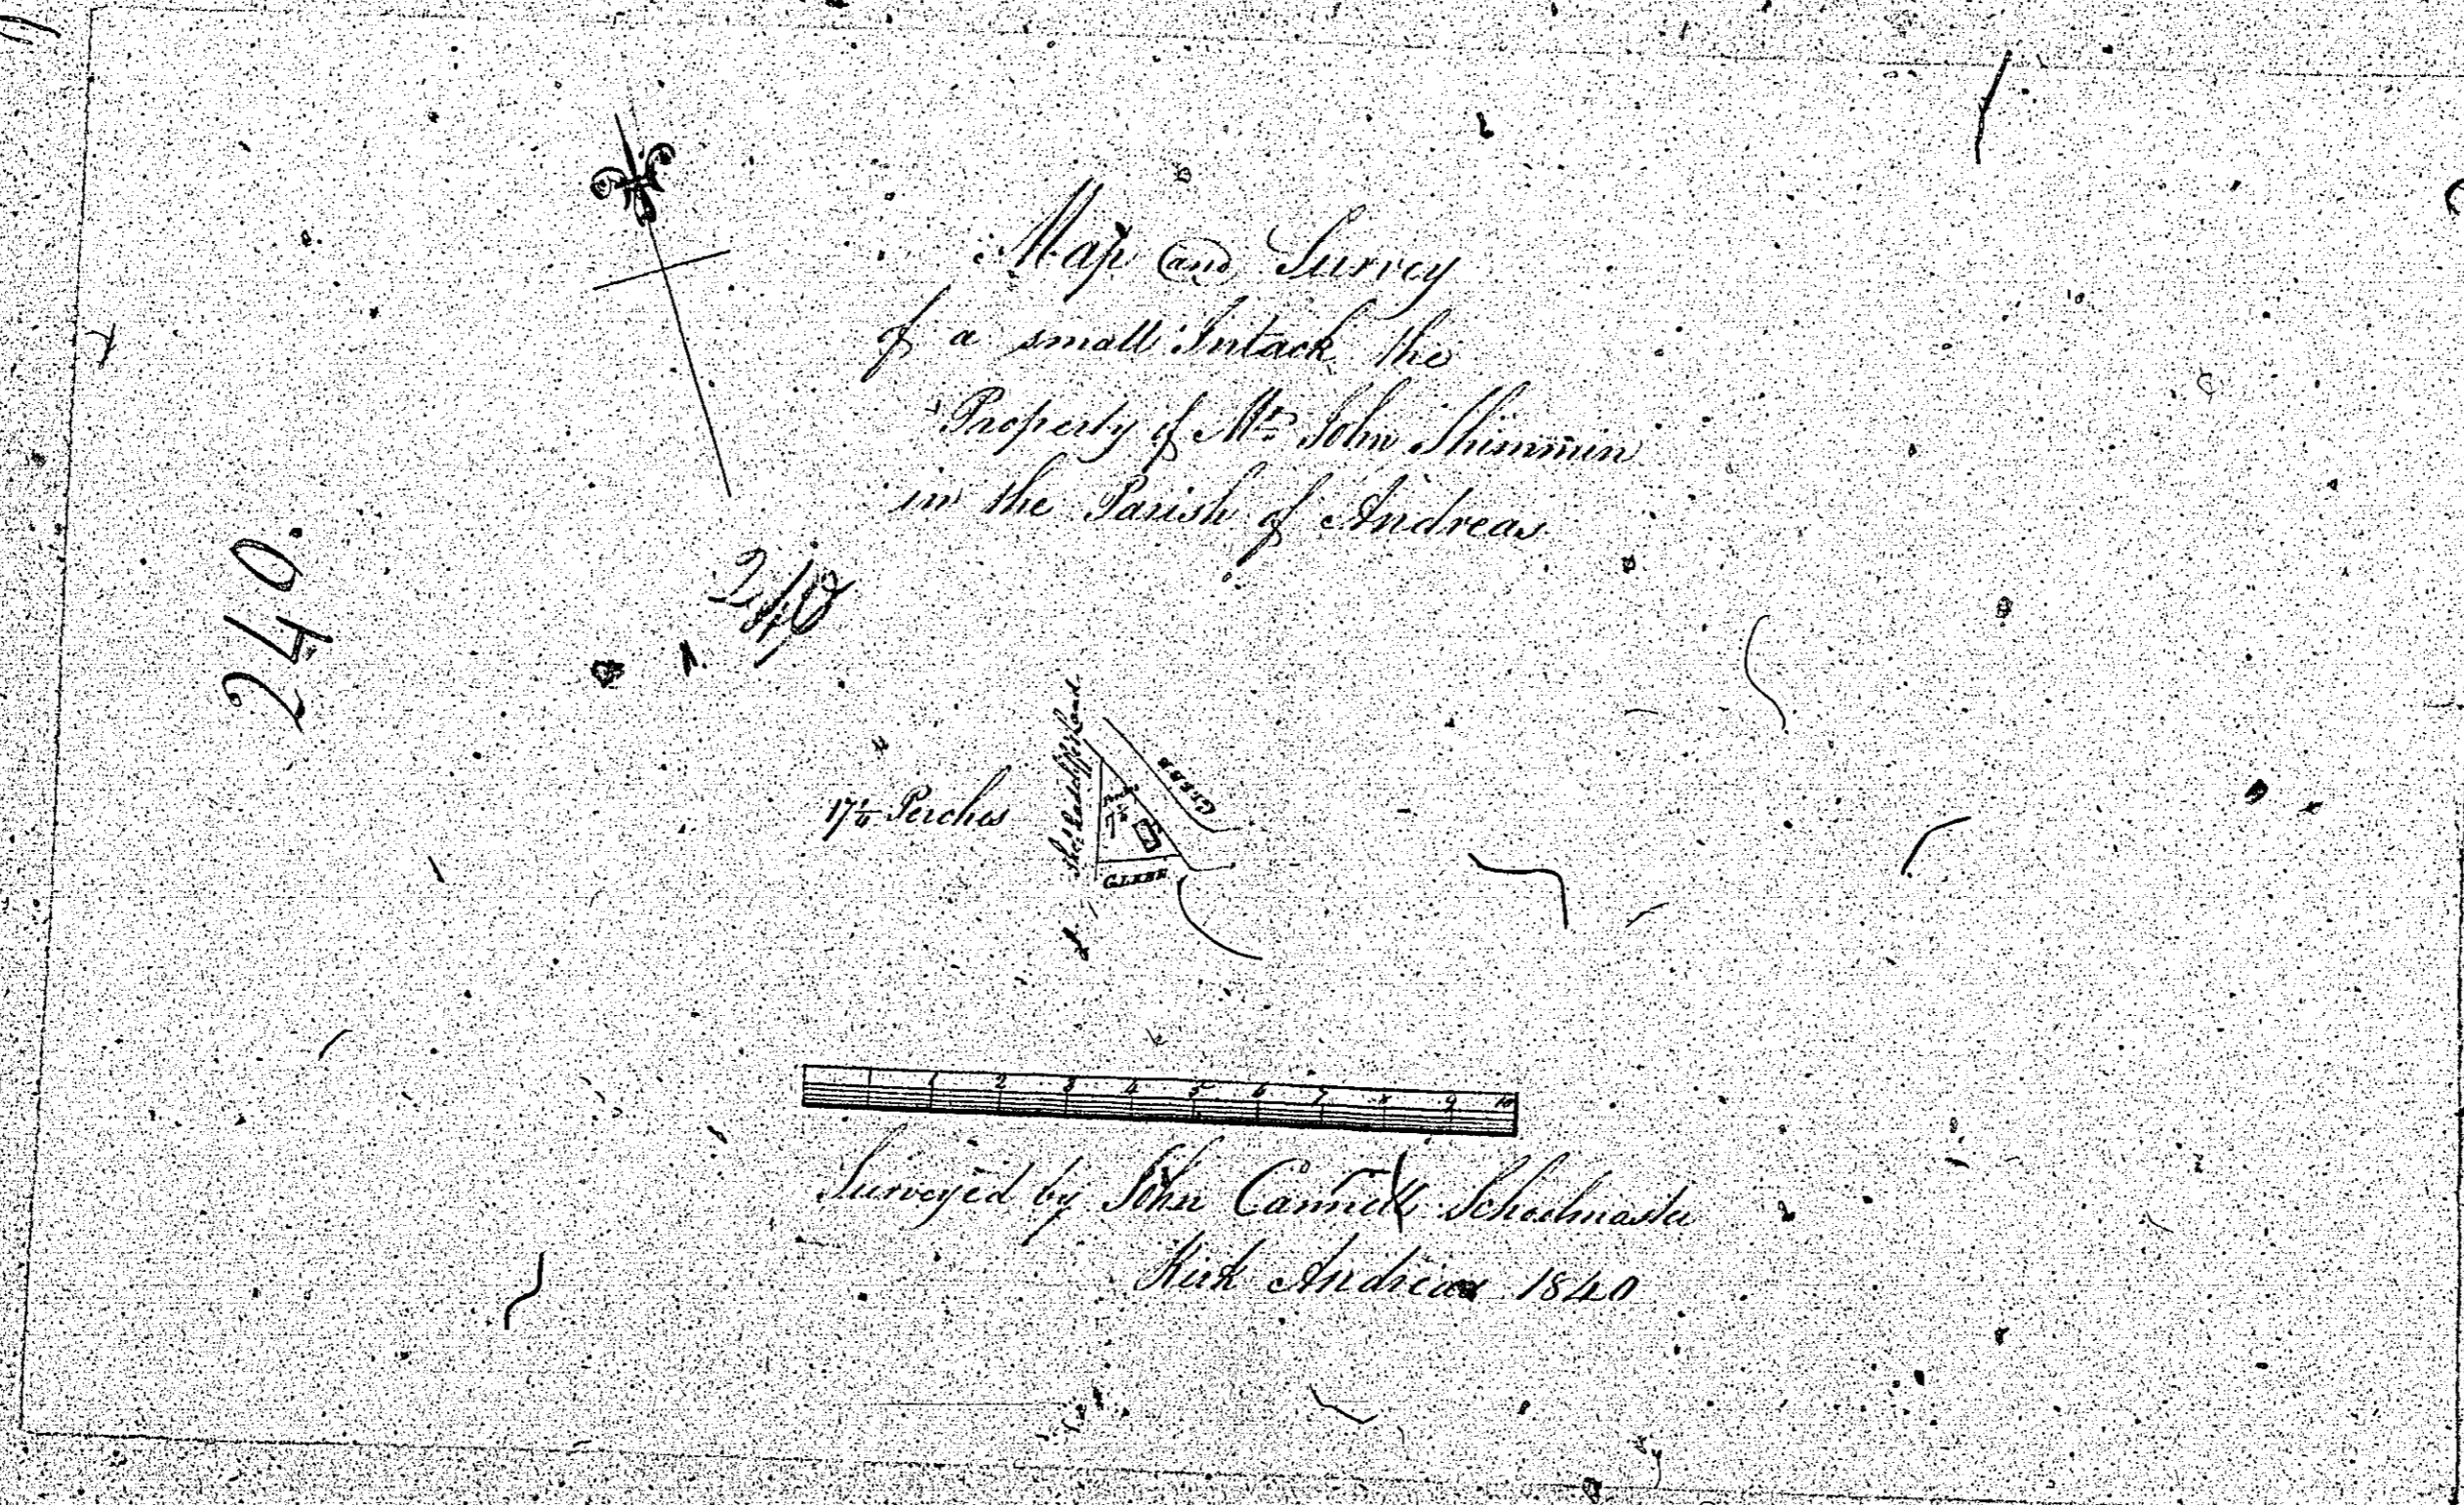 Map and Survey
of a small Intack the
Property of Mr John Shimmin
in the Parish of Andreas
240.
240
17¼ Perches
GLEBE
17¼
Land
GLEBE
1 2 3 4 5 6 7 8 9 10
Surveyed by John Cannell Schoolmaster
Kirk Andreas 1840